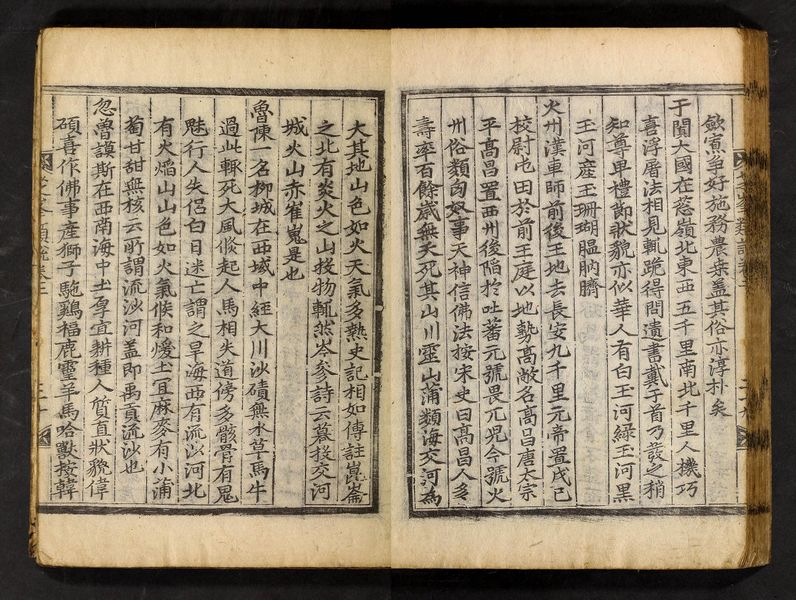 飲寅爭好施務農桒盖其俗亦淳朴矣
于闐大國在葱嶺北東西五千里南北千里人機巧
喜浮屠法相見輒跪得問遺書戴于首乃發之稍
知尊卑禮節狀貌亦似華人有白玉河綠玉河黑
玉河産玉珊瑚膃肭臍
火州漢車師前後王地去長安九千里元帝置戊己
校尉屯田於前王庭以地勢高敞名高昌唐太宗
平高昌置西州後陷於吐蕃元號畏兀兒今號火
州俗類匈奴事天神信佛法按宋史曰高昌人多
壽率百餘歳無夭死其山川靈山蒲類海交河為
大其地山色如火天氣多熱史記相如傳註崑崙
之北有炎火之山投物輒然岑參詩云暮投交河
城火山赤崔嵬是也
魯陳一名柳城在西域中經大川沙磧無水草馬牛
過此輒死大風倐起人馬相失道傍多骸骨有鬼
魅行人失侶白日迷亡謂之旱海西有流沙河北
有火焰山山色如火氣候和煖土宜麻麥有小蒲
萄甘甜無核云所謂流沙河盖即禹貢流沙也
忽魯謨斯在西南海中土厚宜耕種人質直狀貌偉
碩喜作佛事産獅子駞鷄福鹿靈羊馬哈獸按韓
芝峯類說卷二